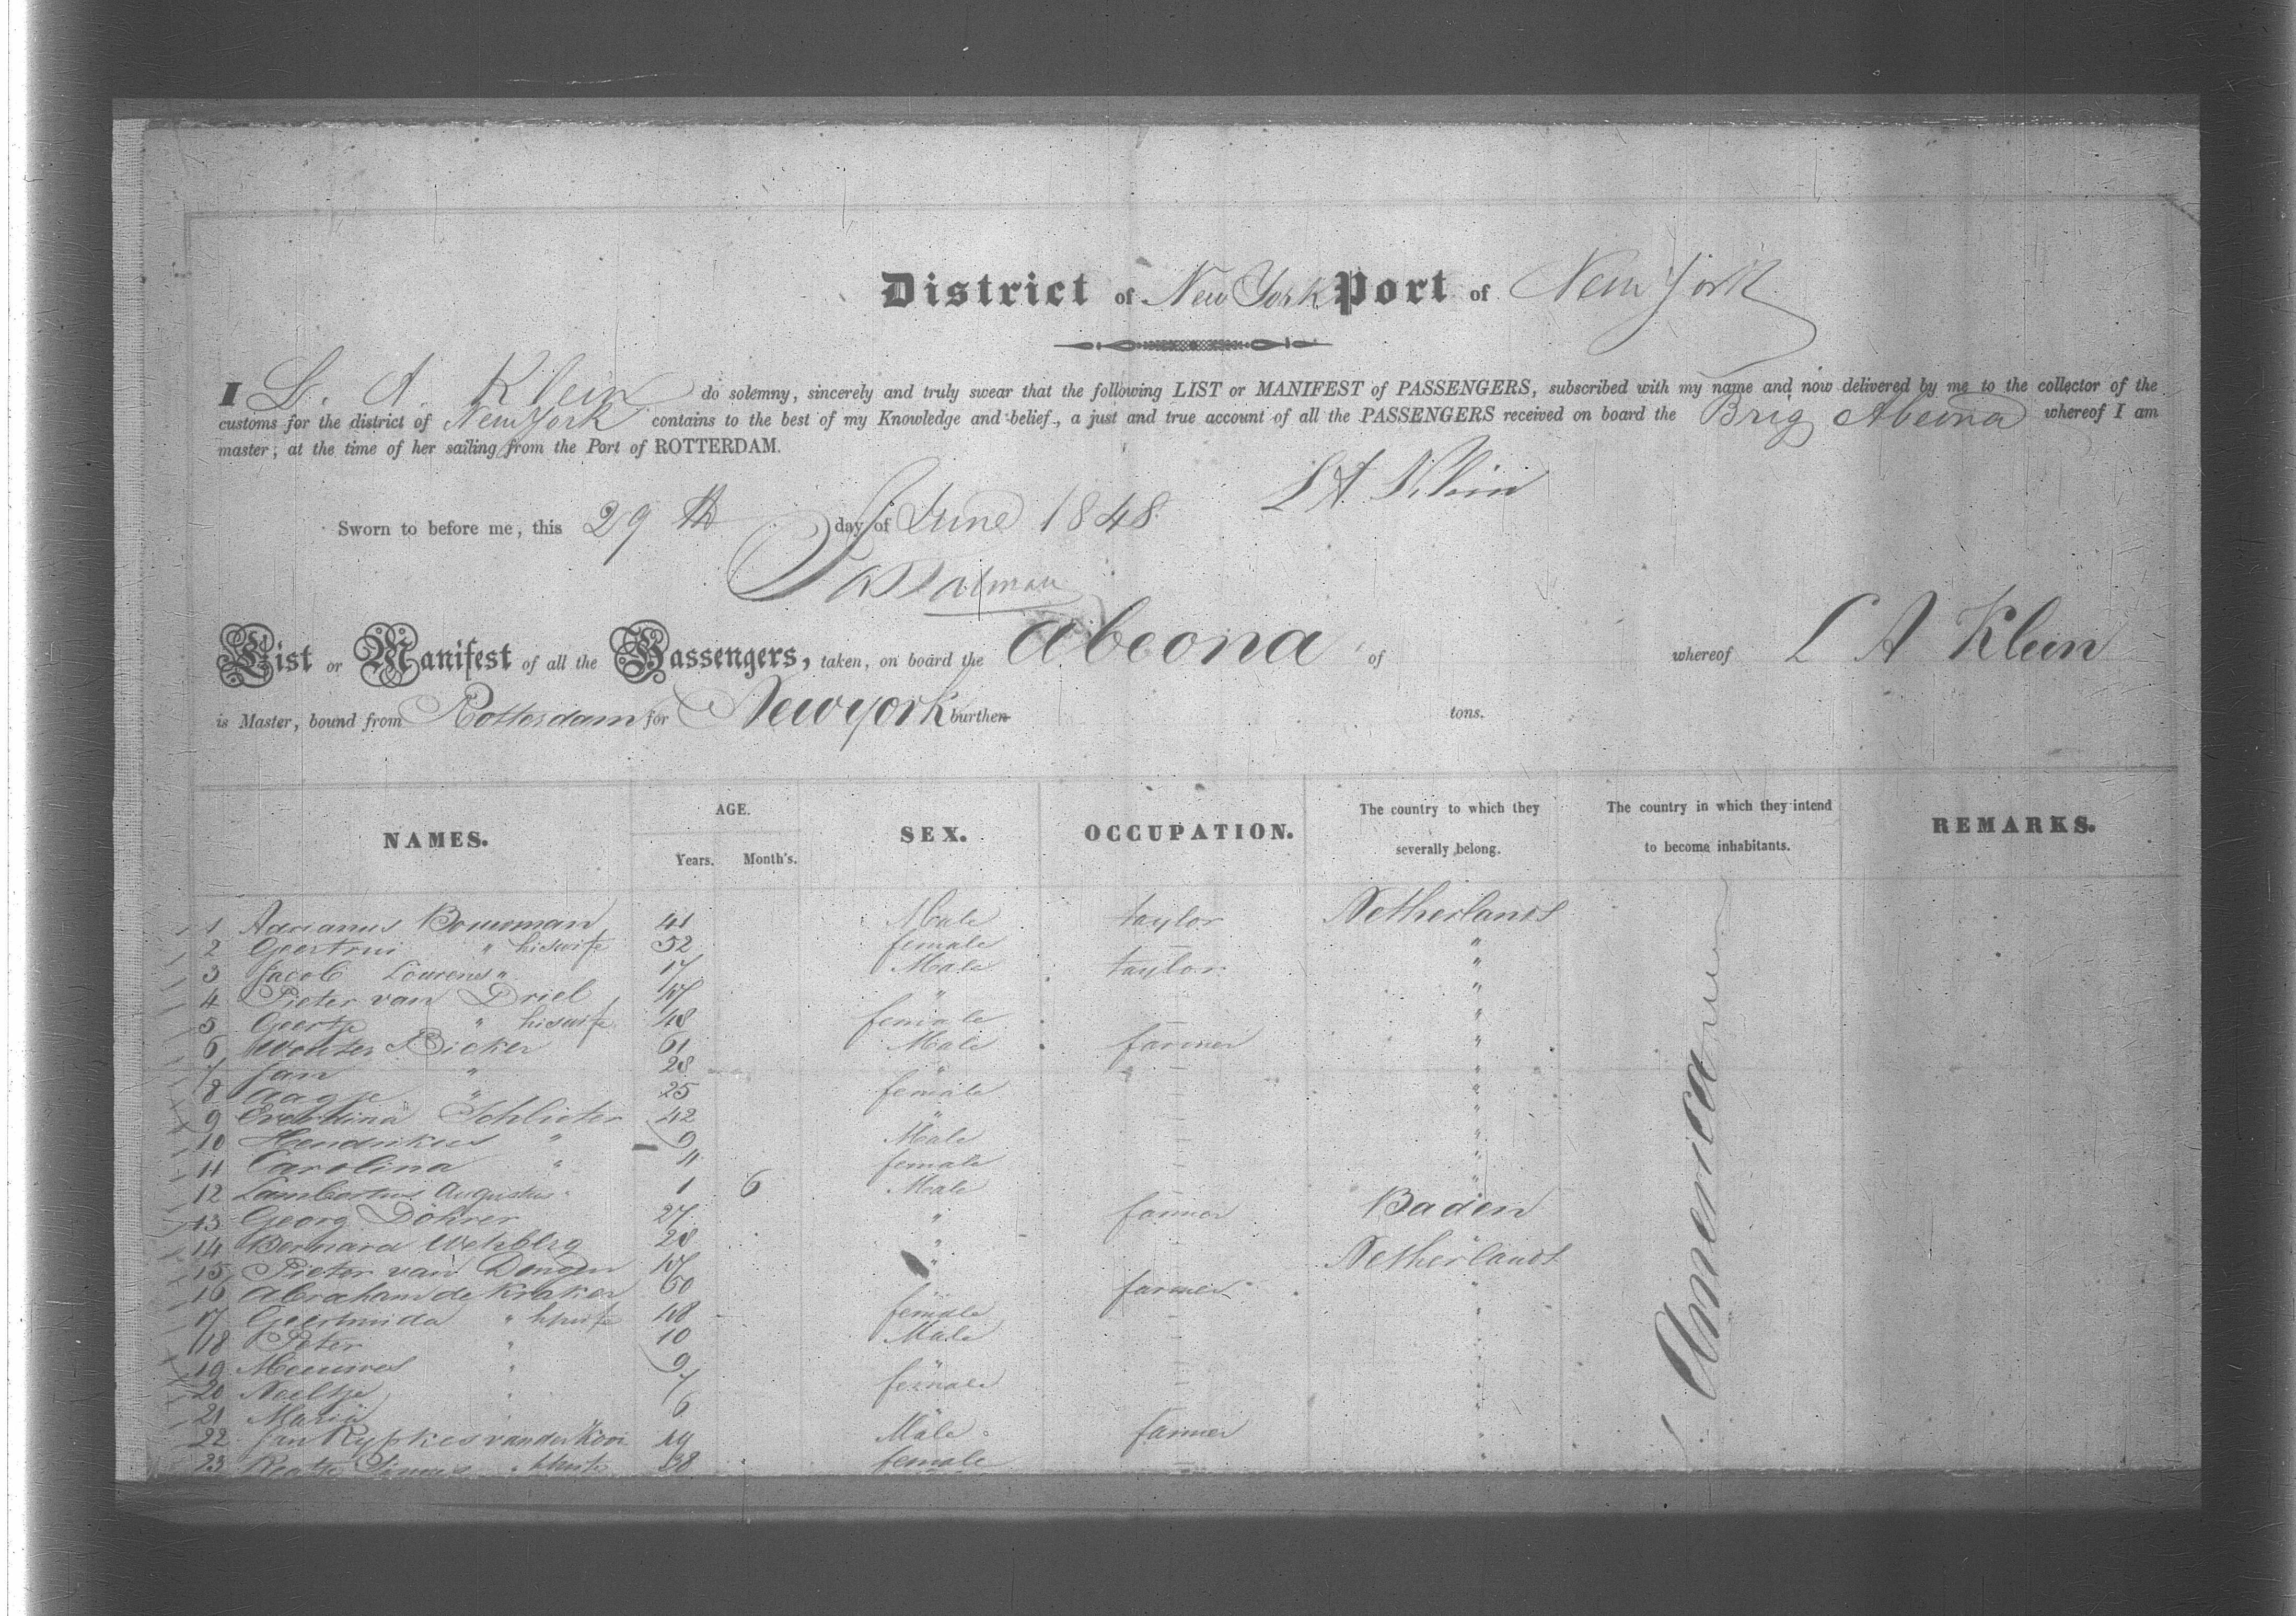 District of New York Port of New York
I L. A. Klein do solemny, sincerely and truly swear that the following LIST or MANIFEST of PASSENGERS, subscribed with my name and now delivered by me to the collector of the
customs for the district of New York contains to the best of my Knowledge and belief, a just and true account of all the PASSENGERS received on board the Brig Abeona whereof I am
master, at the time of her sailing from the Port of ROTTERDAM.
L A Klein
Sworn to before me, this 29 th day of June 1848
List or Manifest of all the Passengers, taken, on board the Abeona of whereof L A Klein
is Master, bound from Rotterdam for Newyork burthen tons.
NAMES. AGE. Years. Month's. SEX. OCCUPATION. The country to which they severally belong. The country in which they intend to become inhabitants. REMARKS.
1 Adrianus Bouwman 41 Male taylor Netherlands
2 Geertrui " his wife 52 female — "
3 Jacob Lourens " 17 Male taylor "
4 Pieter van Driel 47 " "
5 Geertje " his wife 48 female — "
6 Wouter Bicker 61 Male farmer "
7 Jan " 28 " — "
8 Aagje " 25 female — "
9 Schlieter 42 " — "
10 Hendrikus " 9 Male — "
11 Carolina " 4 female — "
12 Lambertus Augustus 1 6 Male "
13 Georg Döhrer 27 " farmer Baden
14 Bernard 28 " —
15 Pieter van Dongen 47 " Netherlands
16 Abraham de Kraker 60 " farmer "
17 Geertruida " h wife 48 female — "
18 Peter " 10 Male — "
19 Meeuwes " 9 " — "
20 Neeltje " 7 female — "
21 Maria " 6 " "
22 Jan Rypkes van der Kooi 49 Male farmer "
23 38 female — "
America